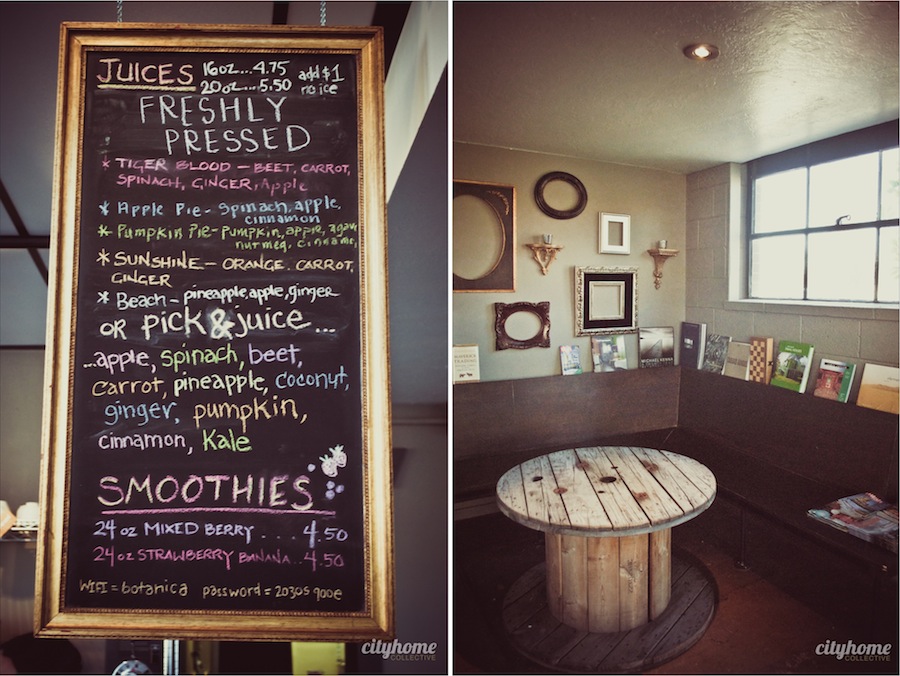 JUICES 16oz...4.75 add $1
20oz...5.50 no ice
FRESHLY
PRESSED
* TIGER BLOOD - BEET, CARROT,
SPINACH, GINGER, Apple
* Apple Pie - Spinach, apple,
cinnamon
* Pumpkin Pie - pumpkin, apple, agave
nutmeg, cinnamon
* SUNSHINE - ORANGE, CARROT,
GINGER
* Beach - pineapple, apple, ginger
OR pick & juice ...
...apple, spinach, beet,
carrot, pineapple, coconut,
ginger, pumpkin,
cinnamon, Kale
SMOOTHIES
24 oz MIXED BERRY ... 4.50
24 oz STRAWBERRY BANANA .. 4.50
WIFI = botanica password = 20305 900e
cityhome
COLLECTIVE
MICHAEL KENNA
cityhome
COLLECTIVE